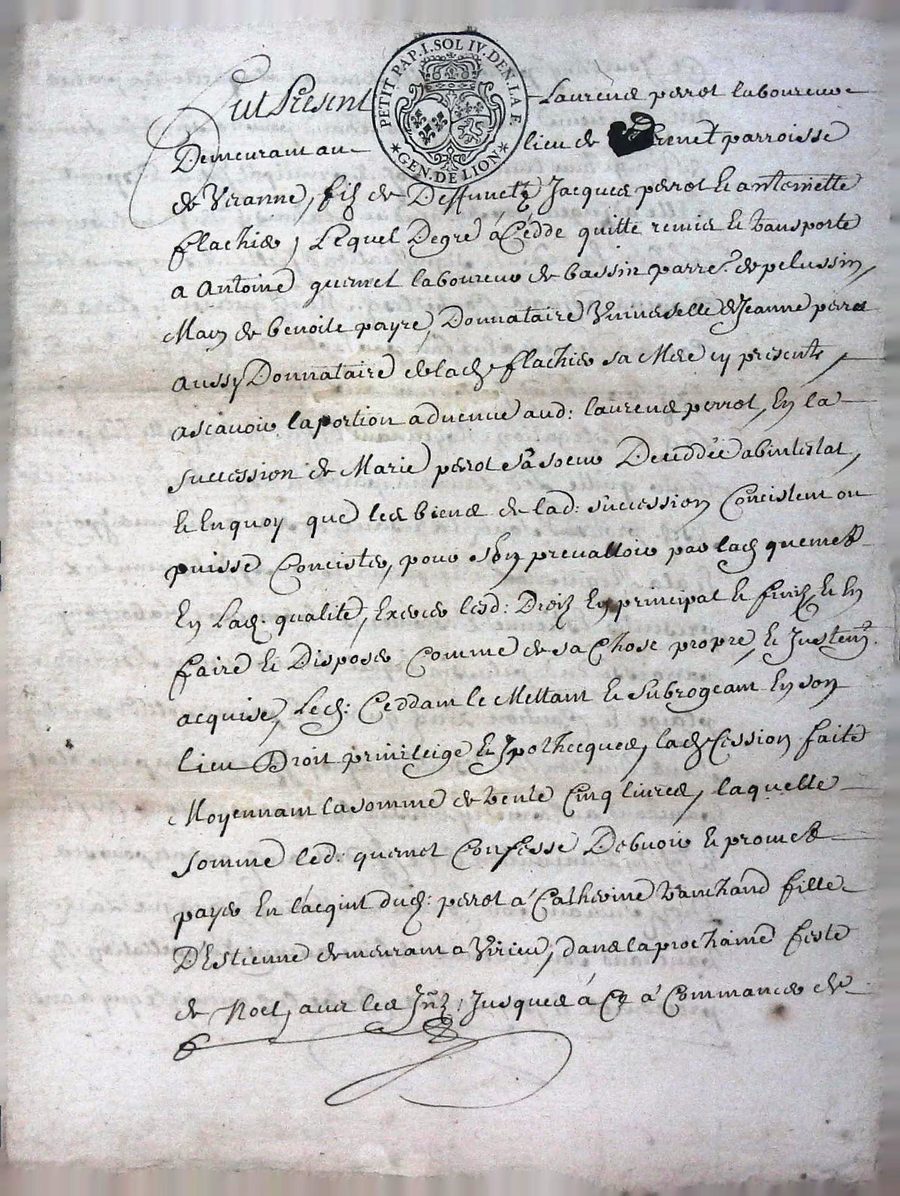 PETIT PAP. I. SOL IV. DEN. LA F.
* GEN. DE LION *
Fut Present Laurens perrot laboureur
Demeurant au lieu de parroisse
de Veranne, filz de Deffunctz Jacques perrot et antoinette
flachier, Lequel Degré a Cedde quitte remis et transporte
a Antoine quemet laboureur de bassin parre. de pelussin,
Mary de benoite payre, Donnataire Universelle de Jeanne perrot
aussy Donnataire de lad. flachier sa Mere cy presente,
ascavoir la portion advenue aud: laurens perrot, En la
succession de Marie perrot sa soeur Deceddée abintestat,
Et En quoy que les biens de lad: succession Concistent ou
puisse Concister, pour s'En prevalloir par led. quemet
En Lad. qualité, Exercer lesd: Droiz En principal et fruiz, Et En
faire et Disposer Comme de sa Chose propre, Et Justem.
acquise, Led: Ceddant le Mettant et Subrogeant En son
lieu Droit privileige Et Jpothecques, lad. Cession faite
Moyennant la somme de trente Cinq livres, laquelle
somme led: quemet Confesse Debvoir et promet
payer En l'acquit dud: perrot á Catherine fille
D'Estienne demeurant a Virieu, dans la prochaine feste
de Noel, avec les Jusques á Ce á Commancer de